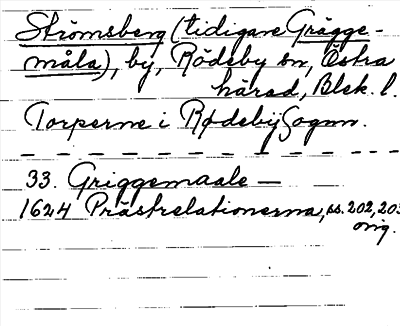 Strömsberg (tidigare Grägge-
måla), by, Rödeby sn, Östra
härad, Blek. l.
Torperne i Rødeby Sognn.
33. Griggemaale —
1624 Prästrelationerna, ss. 202, 203
orig.